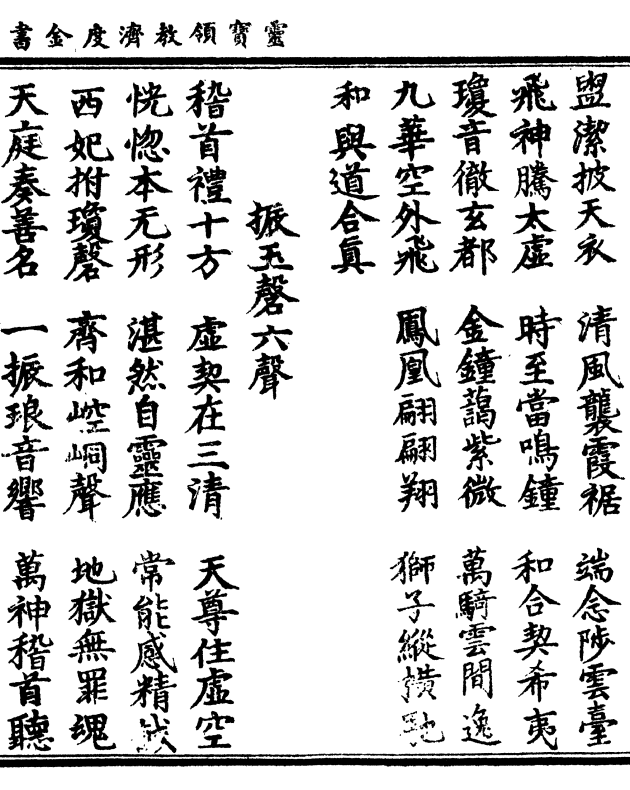 靈寶領教濟度金書
盥潔披天衣 清風襲霞裾 端念陟雲臺
飛神騰太虛 時至當鳴鐘 和合契希夷
瓊音徹玄都 金鐘藹紫微 萬騎雲間逸
九華空外飛 鳳凰翩翩翔 獅子縱橫馳
和與道合眞
振玉磬六聲
稽首禮十方 虛契在三清 天尊住虛空
恍惚本无形 湛然自靈應 常能感精誠
西妃拊瓊磬 齊和崆峒聲 地獄無罪魂
天庭奏善名 一振琅音響 萬神稽首聽